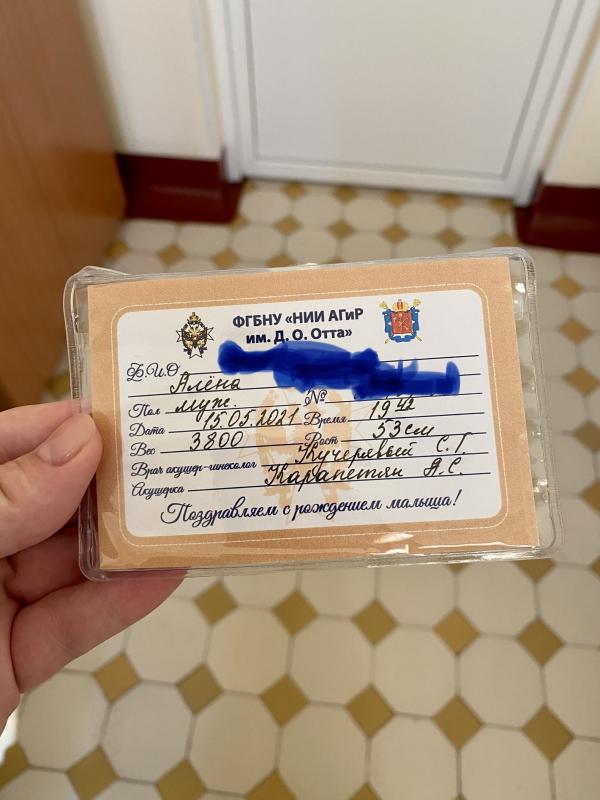 ФГБНУ «НИИ АГиР
им. Д. О. Отта»
Ф.И.О.
Алёна
Пол муж. №
Дата 15.05.2021 Время 19 42
Вес 3800 Рост 53 см
Врач акушер-гинеколог Кучерявый С. Г.
Акушерка Карапетян А. С.
Поздравляем с рождением малыша!